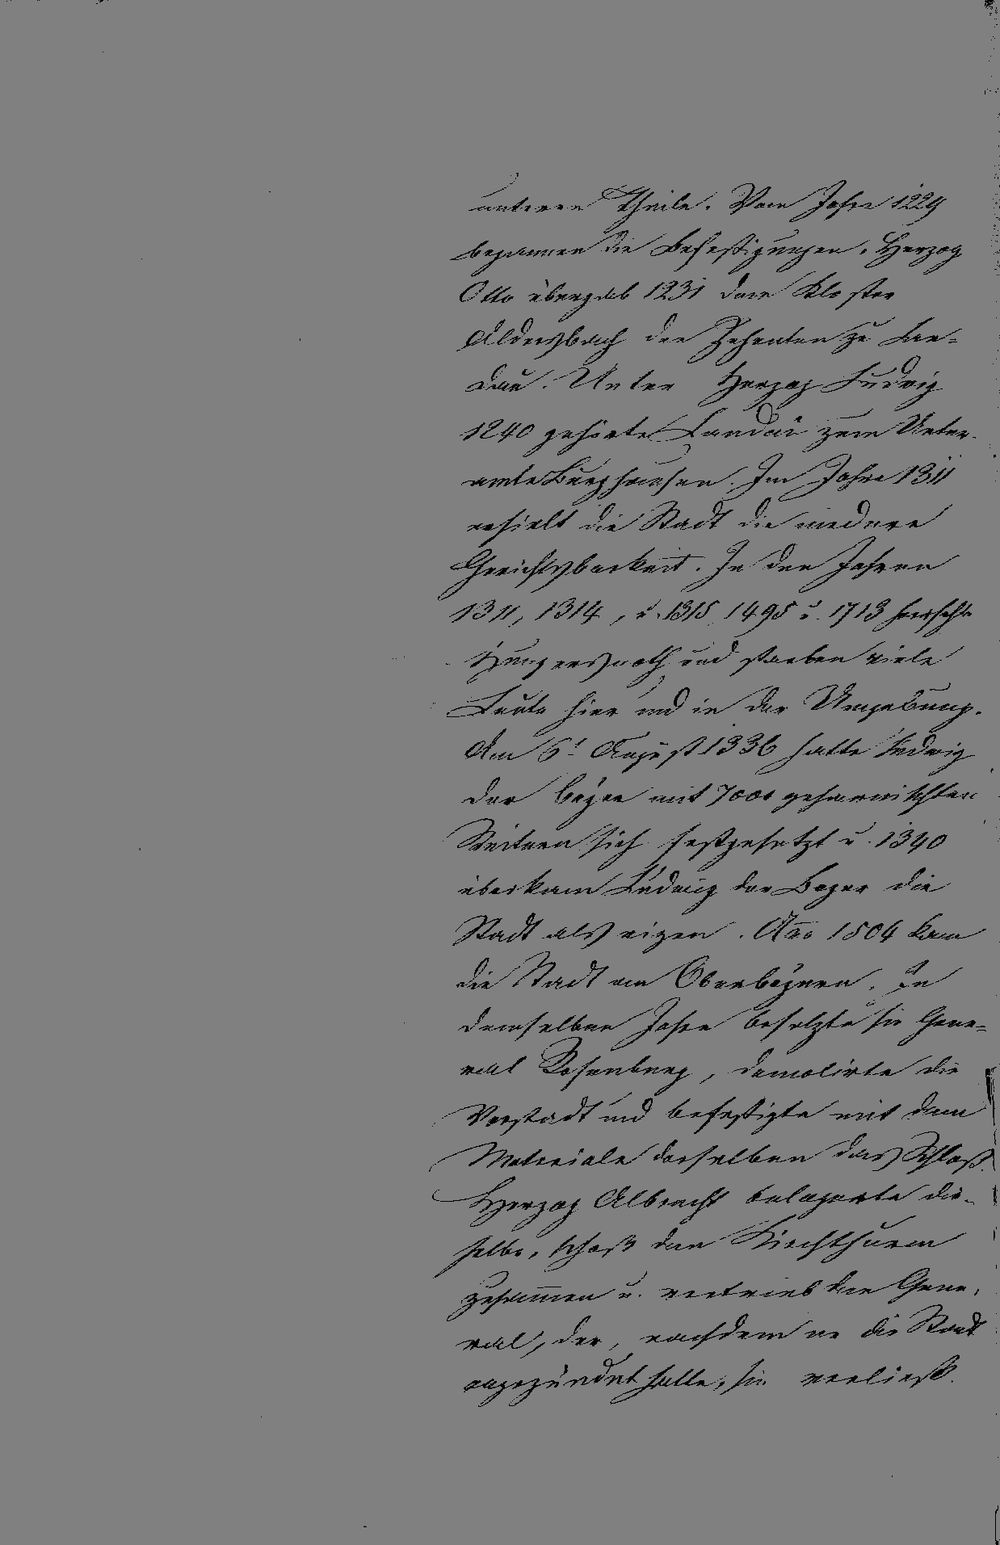 unteren Theile. Vom Jahre 1229
begannen die Befestigungen. Herzog
Otto übergab 1231 dem Kloster
Aldersbach den Zehenten zu Lan-
dau. Unter Herzog Ludwig
1240 gehörte Landau zum Unter-
amte Burghausen. Im Jahre 1311
erhielt die Stadt die niedere
Gerichtsbarkeit. In den Jahren
1311, 1314, u. 1315, 1495 u. 1713 herrschte
Hungersnoth und starben viele
Leute hier und in der Umgebung.
Am 6t August 1336 hatte Ludwig
der Bayer mit 7000 geharnischten
Reitern sich festgesetzt u. 1340
überkam Ludwig der Bayer die
Stadt als eigen. Ano 1504 kam
die Stadt an Oberbayern. In
demselben Jahre besetzte sie Gene-
ral Rosenberg, demolirte die
Vorstadt und befestigte mit dem
Materiale derselben das Schloß.
Herzog Albrecht belagerte die-
selbe, schoß den Kirchthurm
zusammen u. vertrieb den Gene-
ral, der, nachdem er die Stadt
angezündet hatte, sie verließ.